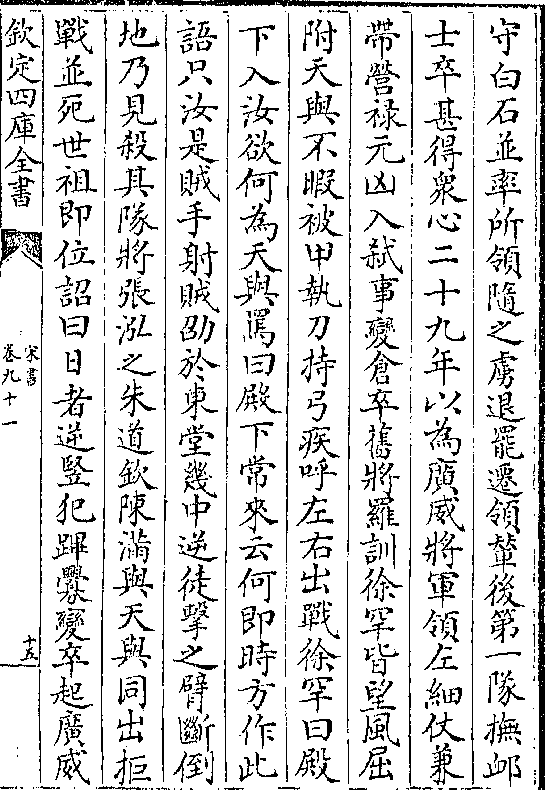 守白石並率所領隨之虜退罷遷領輦後第一隊撫䘏
士卒甚得衆心二十九年以為廣威將軍領左細仗兼
帶營禄元凶入弑事變倉卒舊將羅訓徐罕皆望風屈
附天與不暇被甲執刀持弓疾呼左右出戰徐罕曰殿
下入汝欲何為天與罵曰殿下常來云何即時方作此
語只汝是賊手射賊劭於東堂幾中逆徒擊之臂斷倒
地乃見殺其隊將張泓之朱道欽陳滿與天與同出拒
戰並死世祖即位詔曰日者逆豎犯蹕釁變卒起廣威
欽定四庫全書
宋書
卷九十一
十五